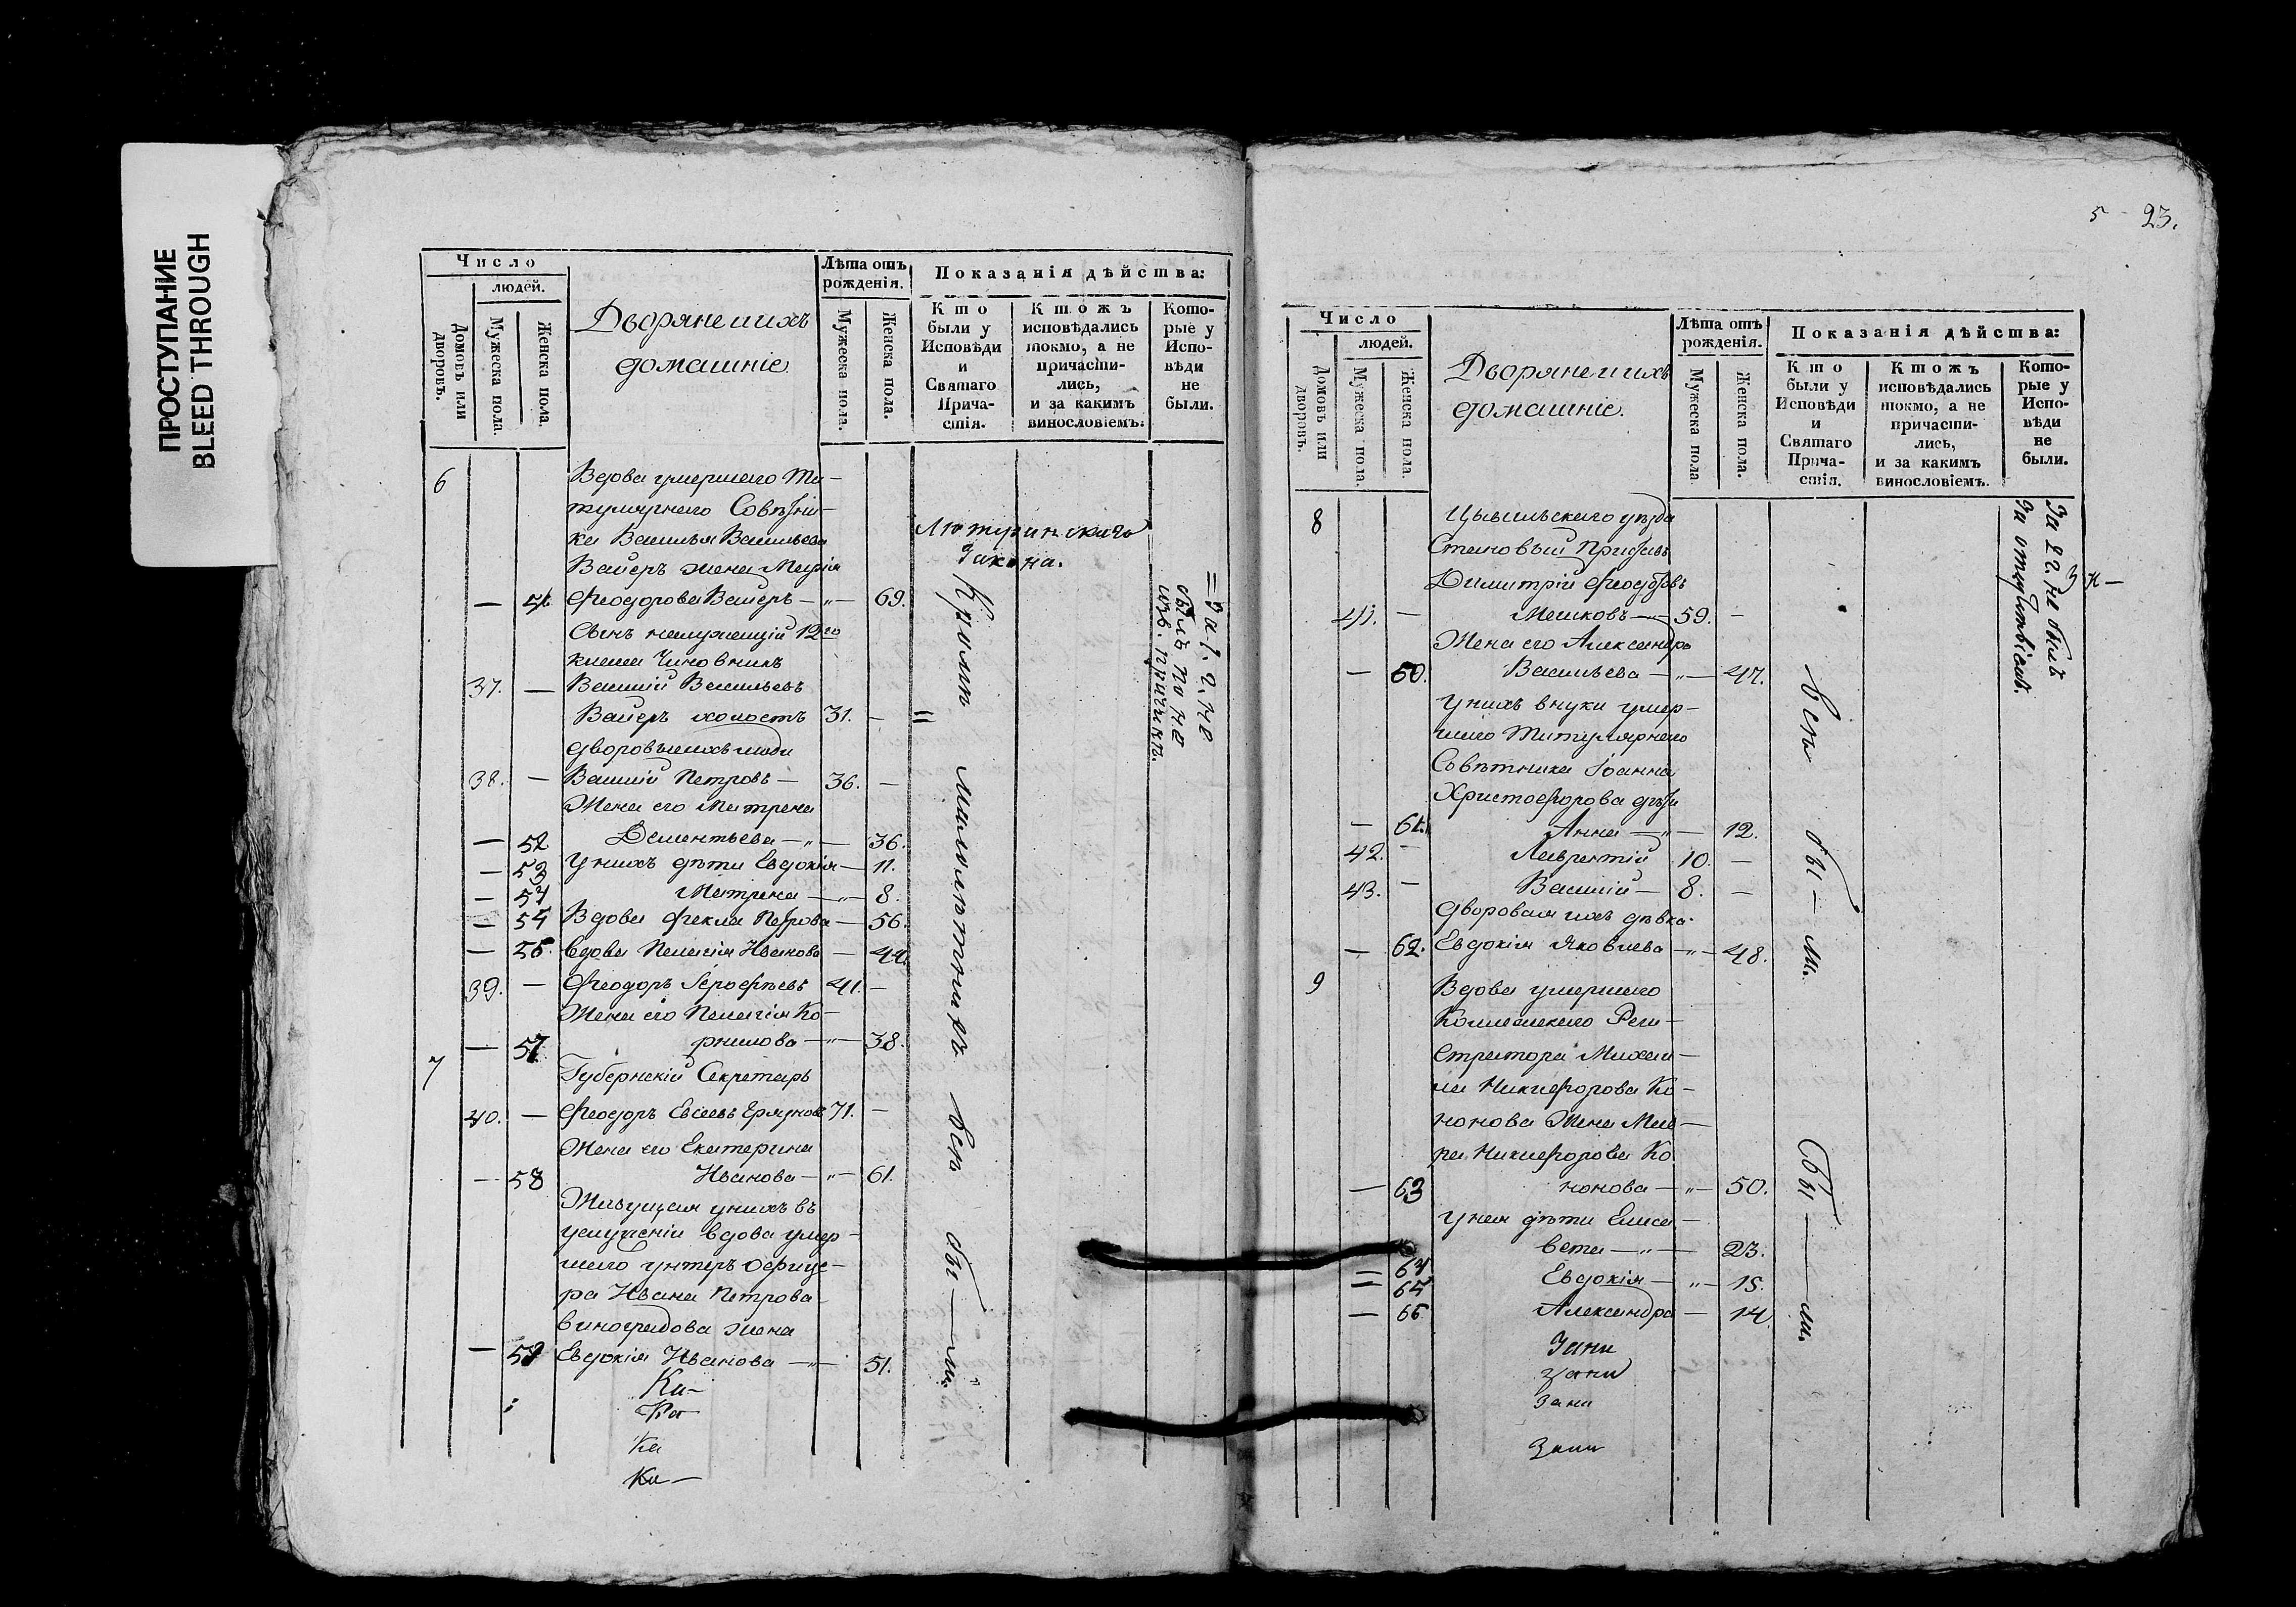 ПРОСТУПАНИЕ
BLEED THROUGH
Число
людей.
Домовъ или дворовъ.
Мужеска пола.
Женска пола.
Дворяне и ихъ
домашніе
Лѣта отъ
рожденія.
Мужеска пола.
Женска пола.
Показанія дѣйства:
Кто
были у
Исповѣди
и
Святаго
Прича-
стія.
Ктожъ
исповѣдались
токмо, а не
причасти-
лись,
и за какимъ
винословіемъ.
Кото-
рые у
Испо-
вѣди
не
были.
6 Вдова умершаго Ти-
тулярнаго Совѣтни-
ка Василья Васильева
Вайеръ жена Марія
— 51. Феодорова Вайеръ — „ — 69.
Лютеринскаго
Закона.
Сынъ неслужащій 12го
класа Чиновникъ
37. — Василій Васильевъ
Вайеръ холостъ 31. — =
дворовые ихъ люди
38. — Василій Петровъ — 36. —
Жена его Матрена
— 52 Дементьева — „ — 36.
— 53 У нихъ дѣти Евдокія — 11.
— 54 Матрена — „ — 8.
— 55 Вдова Фекла Петрова — 56.
— 56. Вдова Пелагія Иванова — 44.
39. — Феодоръ Іерофѣевъ 41. —
Жена его Пелагія Ко-
— 57. рнилова — „ — 38.
7 Губернскій Секретарь
40. — Феодоръ Евсеевъ 71. —
Жена его Екатерина
— 58 Иванова — „ — 61.
Живущая у нихъ въ
услуженіи вдова умер-
шаго унтеръ офице-
ра Ивана Петрова
Виноградова жена
— 59 Евдокія Иванова — „ — 51.
Ка-
Ка
Ка
Ка —
Кромѣ малолѣтнихъ всѣ бы — ли.
= За 1. г. не
былъ по не
изв. причинѣ.
5 - 23.
Число
людей.
Домовъ или дворовъ.
Мужеска пола.
Женска пола.
Дворяне и ихъ
домашніе.
Лѣта отъ
рожденія.
Мужеска пола
Женска пола.
Показанія дѣйства:
Кто
были у
Исповѣди
и
Святаго
Прича-
стія.
Ктожъ
исповѣдались
токмо, а не
причасти-
лись,
и за какимъ
винословіемъ.
Кото-
рые у
Испо-
вѣди
не
были.
8 Цывильскаго уѣзда
Становый Приставъ
Димитрій Феодоровъ
41. — Мешковъ — „ — 59. —
Жена его Александра
— 60. Васильева — „ — 47.
У нихъ внуки умер-
шаго Титулярнаго
Совѣтника Іоанна
Христофорова дѣти
— 61. Анна — „ — 12.
42. — Лаврентій 10. —
43. — Василій — 8. —
Дворовая ихъ дѣвка
— 62. Евдокія Яковлева — „ — 48.
9 Вдова умершаго
Коллежскаго Реги-
стратора Михаи-
ла Никифорова Ко-
нонова Жена
Никифорова Ко
— 63 нонова — „ — 50.
У нея дѣти Елиса-
— 64 вета — „ — 23.
— 65 Евдокія — „ — 15.
— 66 Александра — 14.
Зани
Зани
Зани
Зани
Всѣ бы — ли.
Бы — ли.
За 22. не былъ
За отсутствіемъ.